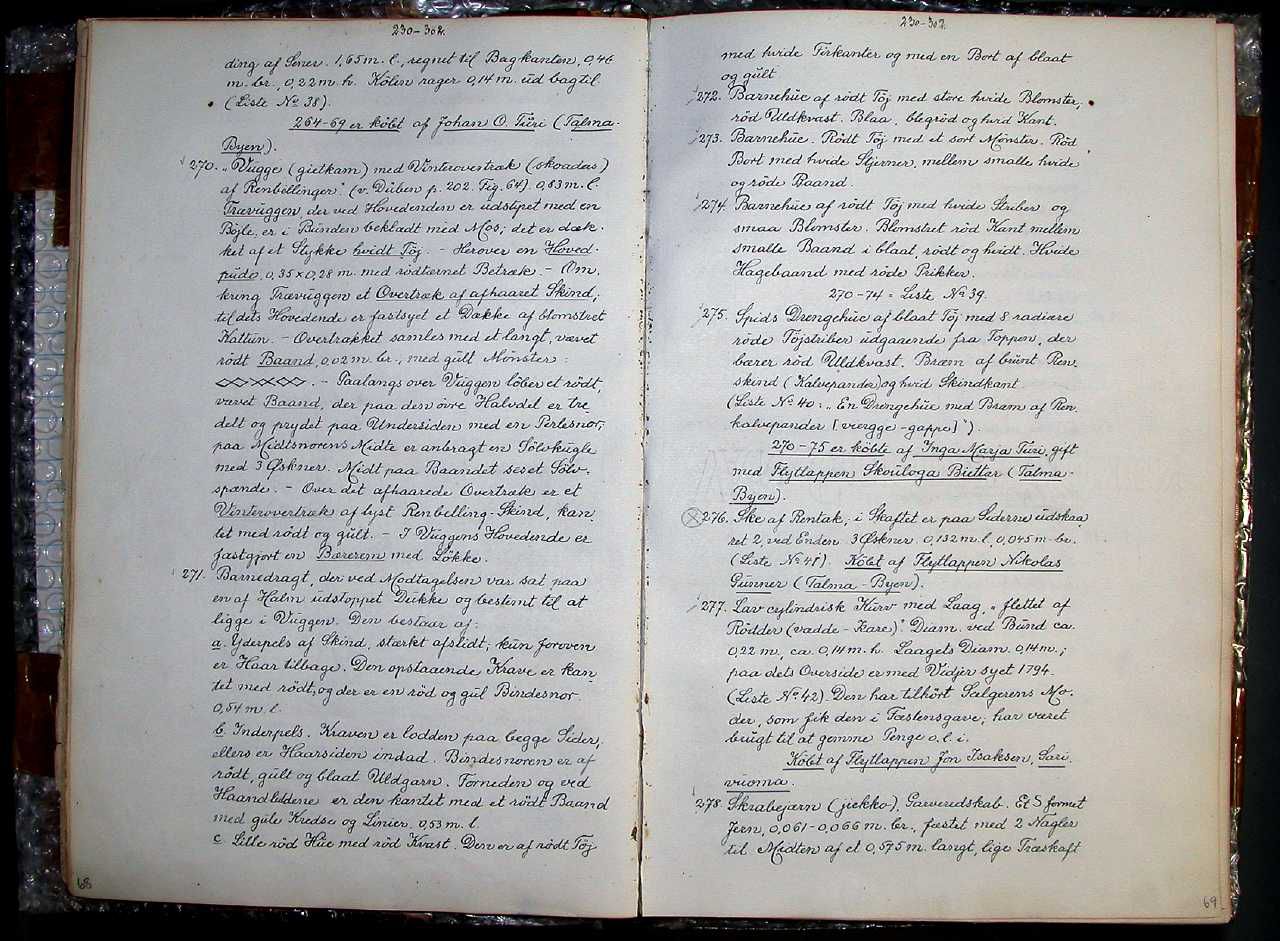 230-302.
ding af Sener. 1,65 m. l., regnet til Bagkanten, 0,46
m. br., 0,22 m. h. Kölen rager 0,14 m. ud bagtil
(Liste No 38).
264-69 er köbt af Johan O. Turi (Talma-
Byen).
270. „Vugge (gietkam) med Vinterovertræk (skoadas)
af Renbellinger" (v. Düben p. 202. Fig. 64). 0,83 m. l.
Trævuggen, der ved Hovedenden er udstyret med en
Böjle, er i Bunden beklædt med Mos; det er dæk-
ket af et Stykke hvidt Töj. - Herover en Hoved-
pude, 0,35 x 0,28 m. med rödternet Betræk. - Om-
kring Trævuggen et Overtræk af afhaaret Skind;
til dets Hovedende er fastsyet et Dække af blomstret
Kattun. - Overtrækket samles med et langt, vævet
rödt Baand, 0,02 m. br., med gult Mönster:
. - Paalangs over Vuggen löber et rödt,
vævet Baand, der paa den övre Halvdel er tre-
delt og prydet paa Undersiden med en Perlesnor;
paa Midtsnorens Midte er anbragt en Sölvkugle
med 3 Øskner. Midt paa Baandet ses et Sölv-
spænde. - Over det afhaarede Overtræk er et
Vinterovertræk af lyst Renbelling-Skind, kan-
tet med rödt og gult. - I Vuggens Hovedende er
fastgjort en Bærerem med Lökke.
271. Barnedragt, der ved Modtagelsen var sat paa
en af Halm udstoppet Dukke og bestemt til at
ligge i Vuggen. Den bestaar af:
a. Yderpels af Skind, stærkt afslidt; kun foroven
er Haar tilbage. Den opstaaende Krave er kan-
tet med rödt, og der er en röd og gul Bindesnor.
0,54 m. l.
b. Inderpels. Kraven er lodden paa begge Sider,
ellers er Haarsiden indad. Bindesnoren er af
rödt, gult og blaat Uldgarn. Forneden og ved
Haandleddene er den kantet med et rödt Baand
med gule Kredse og Linier. 0,53 m. l.
c. Lille röd Hue med röd Kvast. Den er af rödt Töj
68
230-302
med hvide Firkanter og med en Bort af blaat
og gult
272. Barnehue af rödt Töj med store hvide Blomster,
röd Uldkvast. Blaa, blegröd og hvid Kant.
273. Barnehue. Rödt Töj med et sort Mönster. Röd
Bort med hvide Stjerner, mellem smalle hvide
og röde Baand.
274. Barnehue af rödt Töj med hvide Striber og
smaa Blomster. Blomstret röd Kant mellem
smalle Baand i blaat, rödt og hvidt. Hvide
Hagebaand med röde Prikker.
270-74 = Liste No 39.
275. Spids Drengehue af blaat Töj med 8 radiære
röde Töjstriber udgaaende fra Toppen, der
bærer röd Uldkvast. Bræm af brunt Ren-
skind (Kalvepander) og hvid Skindkant.
(Liste No 40: „En Drengehue med Bræm af Ren-
kalvepander [viergge-gappe]").
270-75 er köbte af Inga Marja Turi, gift
med Flytlappen Skouloga Biettar (Talma-
Byen).
276. Ske af Rentak; i Skaftet er paa Siderne udskaa
ret 2, ved Enden 3 Øskner. 0,132 m. l., 0,045 m. br.
(Liste No 41). Köbt af Flytlappen Nikolas
Gunner (Talma-Byen).
277. Lav cylindrisk Kurv med Laag, „flettet af
Rödder (vadde-kare)". Diam. ved Bund ca.
0,22 m., ca. 0,14 m. h. Laagets Diam. 0,14 m.;
paa dets Overside er med Vidjer syet 1794.
(Liste No 42). Den har tilhört Sælgerens Mo-
der, som fik den i Fæstensgave; har været
brugt til at gemme Penge o. l. i.
Köbt af Flytlappen Jon Isaksen, Sari-
vuoma.
278. Skrabejærn (jiekko), Garveredskab. Et S formet
Jern, 0,061-0,066 m. br., fæstet med 2 Nagler
til Midten af et 0,575 m. langt, lige Træskaft
69